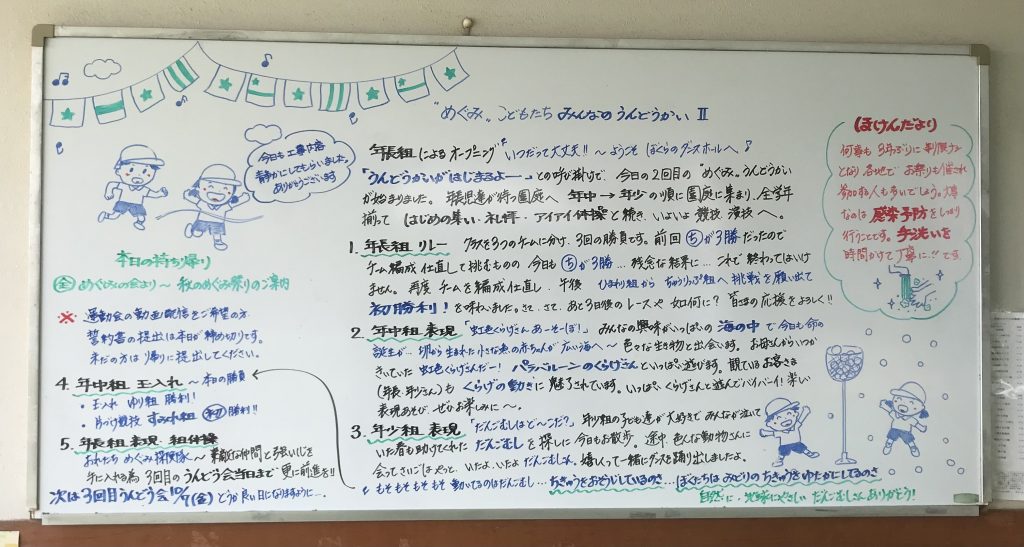 "めぐみ" こどもたち みんなのうんどうかい Ⅱ
今日も工事の音
静かにしてもらいました。
ありがとうございます
本日の持ち帰り
全 めぐみの会より〜 秋のめぐみ祭りのご案内
※ 運動会の動画配信をご希望の方
誓約書の提出は本日が締め切りです。
まだの方は帰りに提出してください。
年長組によるオープニング いつだって大丈夫!! 〜ようこそ ぼくらのダンスホールへ♪
「うんどうかいがはじまるよー」との呼び掛けで、今日の2回目の"めぐみ"うんどうかい
が始まりました。年長児達が待つ園庭へ 年中→年少の順に園庭に集まり、全学年
揃って はじめの集い・礼拝・アイアイ体操と続き、いよいよ競技・演技へ。
1. 年長組 リレー クラスを3つのチームに分け、3回の勝負です。前回 ちが3勝だったので
チーム編成し直して挑むものの 今日も ちが3勝… 残念な結果に… これで終わってはいけ
ません。再度 チームを編成し直し、午後 ひまわり組から ちゅうりっぷ組へ 挑戦を願い出て
初勝利！を味わいました。さて、さて、あとう日後のレースや如何に? 皆さまの応援をよろしく!!
2. 年中組 表現 「虹色くらげさんあーそーぼ!」 みんなの興味がいっぱいの 海の中で今日も命の
誕生が… 卵から生まれた小さな魚の赤ちゃんが広い海へ〜 色々な生き物と出会います。お母さんがいつか
きいていた 虹色くらげさんだー! パラバルーンのくらげさんといっぱい遊びます。観ているお客さま
(年長・年少さん)も くらげの動きに魅了されています。いっぱいくらげさんと遊んでバイバーイ! 楽しい
表現あそび、ぜひお楽しみに〜。
3. 年少組 表現 「だんごむしはど〜こだ?」 年少組の子ども達が大好きで みんなが泣いて
いた春も助けてくれた だんごむしを探しに 今日もお散歩。途中、色んな動物さんに
会ってさいごはやっと、いたよ、いたよ だんごむしさん。嬉しくって一緒にダンスを踊り出しましたよ。
♪もそもそもそもそ 動いてるのはだんごむし… ちきゅうをおそうじしているのさ… ぼくたちは みどりのちきゅうを ゆたかにしてるのさ
自然に・地球にやさしい だんごむしさん ありがとう!
4. 年中組 玉入れ 〜本日の勝負
・玉入れ ゆり組 勝利!
・片づけ競技 すみれ組 初 勝利!!
5. 年長組 表現・組体操
おれたち めぐみ探検隊〜 素敵な仲間と強いじを
手に入れる為 3回目のうんどう会当日まで 更に前進を!!
次は3回目うんどう会10/7(金) どうか良い日になりますように…
ほけんだより
何事も 3年ぶりに 制限なし
となり 各地で お祭りも催され
参加する人も多いでしょう。大事
なのは 感染予防をしっかり
行うことです。手洗いを
時間かけて丁寧に!!です